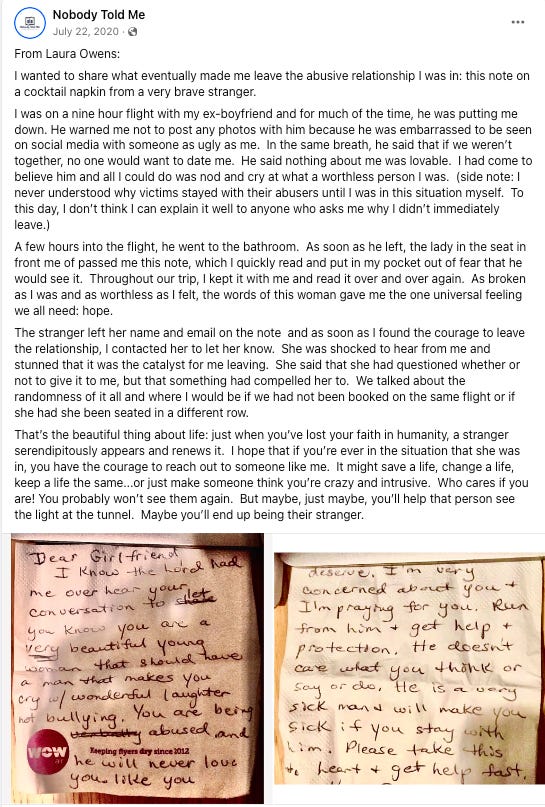 Nobody Told Me
July 22, 2020 ·
From Laura Owens:
I wanted to share what eventually made me leave the abusive relationship I was in: this note on
a cocktail napkin from a very brave stranger.
I was on a nine hour flight with my ex-boyfriend and for much of the time, he was putting me
down. He warned me not to post any photos with him because he was embarrassed to be seen
on social media with someone as ugly as me.  In the same breath, he said that if we weren't
together, no one would want to date me.  He said nothing about me was lovable.  I had come to
believe him and all I could do was nod and cry at what a worthless person I was.  (side note: I
never understood why victims stayed with their abusers until I was in this situation myself.  To
this day, I don't think I can explain it well to anyone who asks me why I didn't immediately
leave.)
A few hours into the flight, he went to the bathroom.  As soon as he left, the lady in the seat in
front me of passed me this note, which I quickly read and put in my pocket out of fear that he
would see it.  Throughout our trip, I kept it with me and read it over and over again.  As broken
as I was and as worthless as I felt, the words of this woman gave me the one universal feeling
we all need: hope.
The stranger left her name and email on the note  and as soon as I found the courage to leave
the relationship, I contacted her to let her know.  She was shocked to hear from me and
stunned that it was the catalyst for me leaving.  She said that she had questioned whether or
not to give it to me, but that something had compelled her to.  We talked about the
randomness of it all and where I would be if we had not been booked on the same flight or if
she had she been seated in a different row.
That's the beautiful thing about life: just when you've lost your faith in humanity, a stranger
serendipitously appears and renews it.  I hope that if you're ever in the situation that she was
in, you have the courage to reach out to someone like me.  It might save a life, change a life,
keep a life the same...or just make someone think you're crazy and intrusive.  Who cares if you
are! You probably won't see them again.  But maybe, just maybe, you'll help that person see
the light at the tunnel.  Maybe you'll end up being their stranger.
Dear Girlfriend
I know the Lord had
me over hear your
conversation to let
you know you are a
very beautiful young
woman that should have
a man that makes you
cry w/ wonderful laughter
not bullying. You are being
abused and
WOW
air
Keeping flyers dry since 2012
he will never love
you like you
deserve. I'm very
concerned about you +
I'm praying for you. Run
from him + get help +
protection. He doesn't
care what you think or
say or do. He is a very
sick man + will make you
sick if you stay with
him. Please take this
to heart + get help fast.